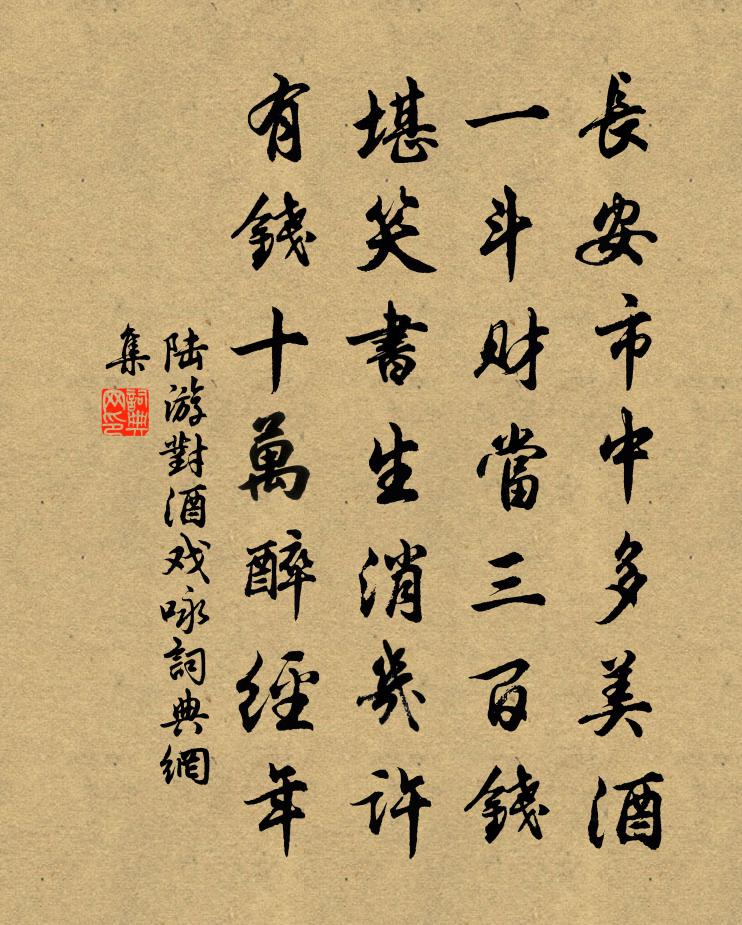 長安市中多美酒
一斗財當三百錢
堪笑書生消幾許
有錢十萬醉經年
陆游對酒戏咏詞典網
集
詞典
网印